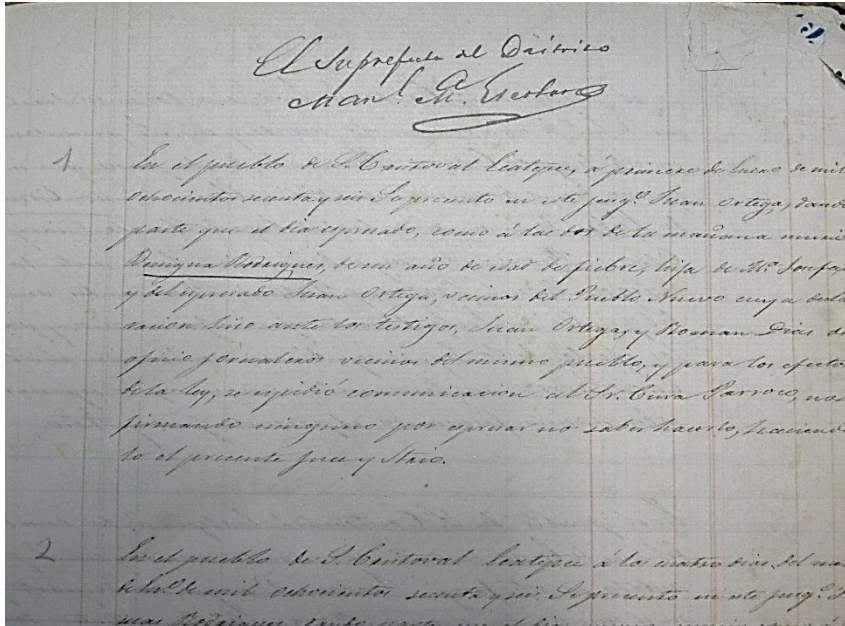 El Suprefecto del Distrito
Man.l M.a Escobar
1
En el pueblo de S. Cristoval Ecatepec, á primero de Enero de mil
ochocientos secenta y seis Se presento en este juzg.o Juan Ortega, dando
parte que el dia espresado, como á las dos de la mañana murió
Benigna Rodrigues, de un año de edad de fiebre, hija de M.a Josefa
y del espresado Juan Ortega, vecinos del Pueblo Nuevo cuya decla
racion hiso ante los testigos, Juan Ortega, y Roman Dias de
oficio jornaleros vecinos del mismo pueblo, y para los efectos
de la ley, se espidió comunicacion al Sr. Cura Parroco, no
firmando ninguno por espresar no saber hacerlo, haciendo
lo el presente Juez y Srio.
2
En el pueblo de S. Cristoval Ecatepec á los cuatro dias del mes
de En.o de mil ochocientos secenta y seis. Se presento en este juzg.o
Rodrigues, dando parte que el dia